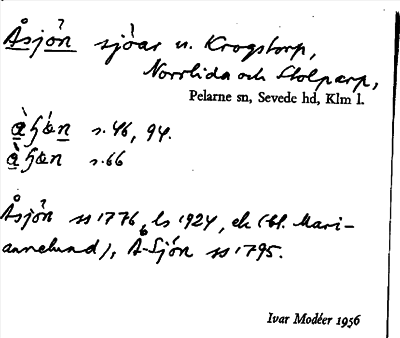 Åsjön sjöar n. Krogstorp,
Norrlida och Stolparp,
Pelarne sn, Sevede hd, Klm l.
s. 46, 94.
s. 66
Åsjön ss 1776, ls 1924, ek (bl. Mari-
annelund), A-Sjön ss 1795.
Ivar Modéer 1956